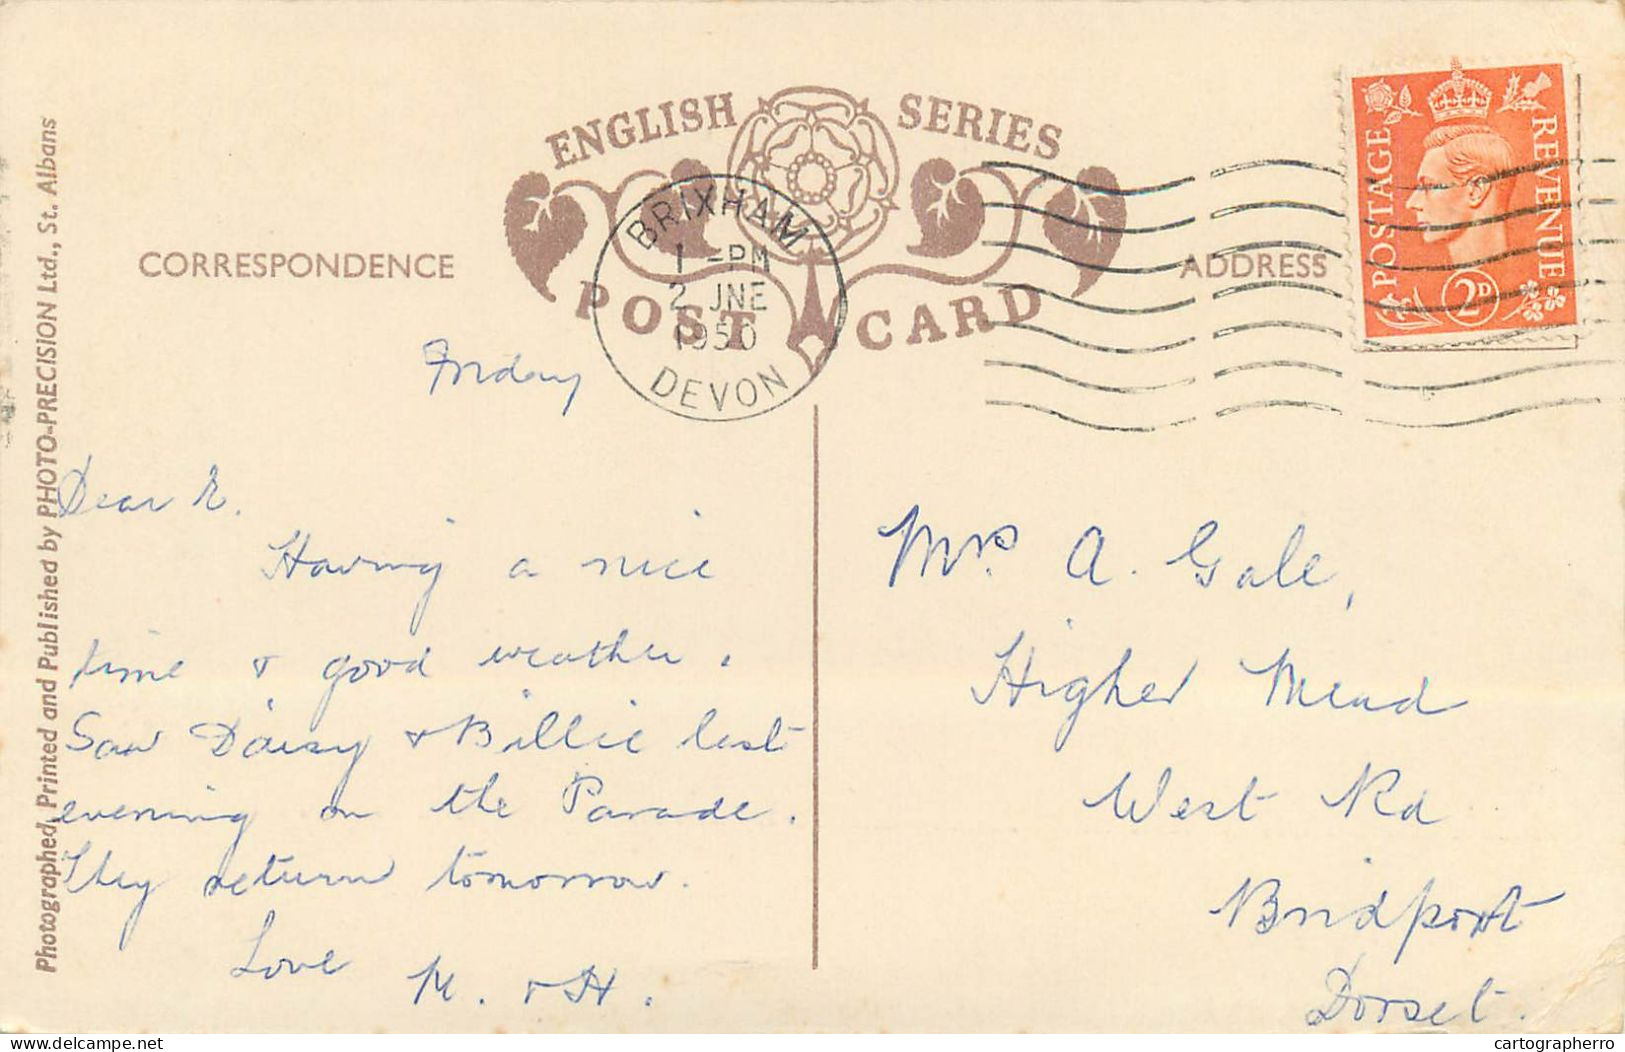 ENGLISH SERIES
POST CARD
CORRESPONDENCE
ADDRESS
BRIXHAM
1 - PM
2 JNE
1950
DEVON
POSTAGE
REVENUE
2D
Photographed, Printed and Published by PHOTO-PRECISION Ltd., St. Albans
Friday
Dear E.
Having a nice
time & good weather.
Saw Daisy & Billie last
evening on the Parade.
They return tomorrow.
Love
M. & H.
Mrs. A. Gale,
Higher Mead
West Rd
Bridport
Dorset.
delcampe.net
cartographerro